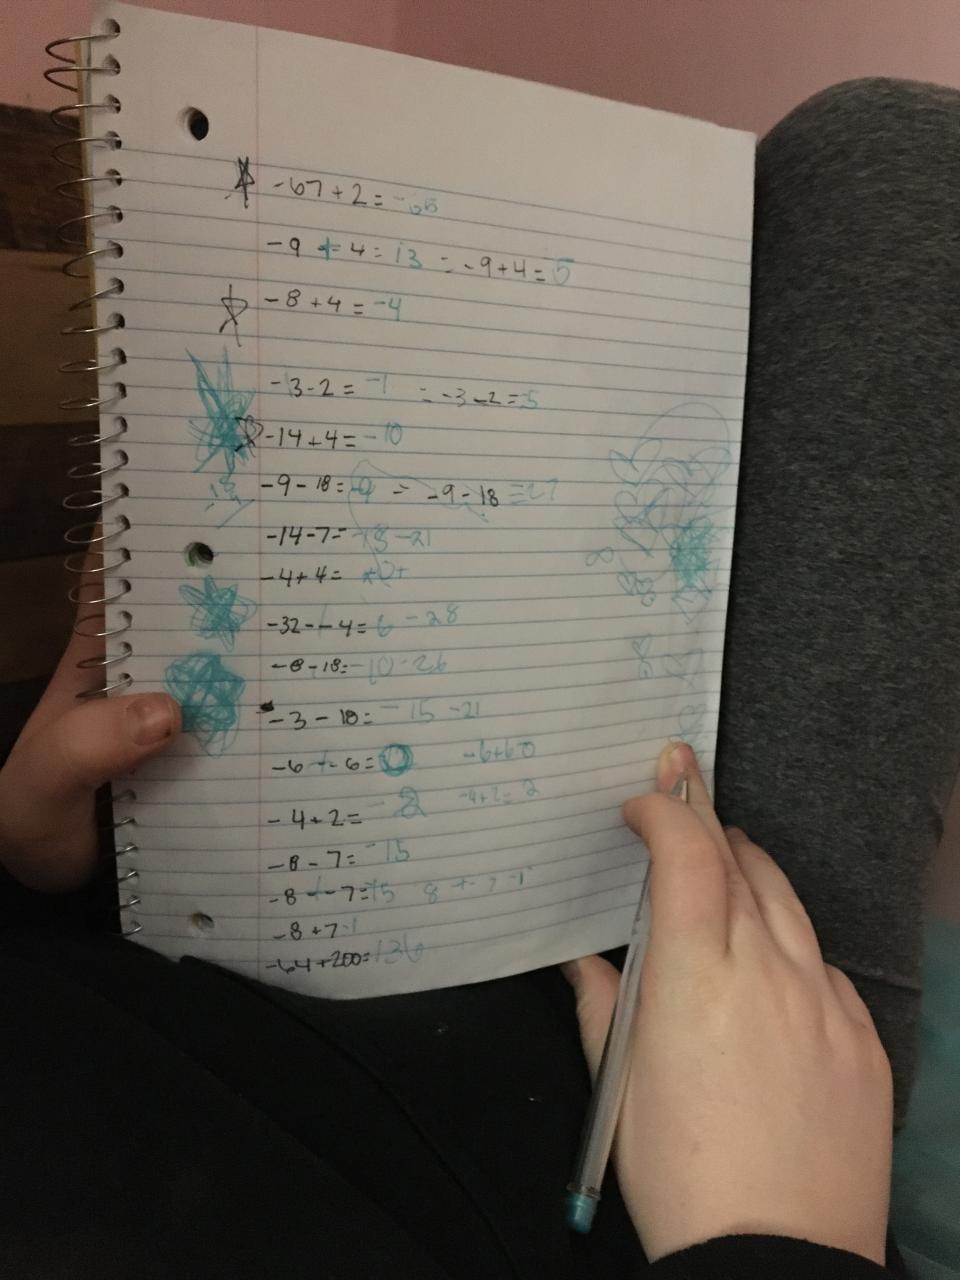 -67+2=-65
-9 + 4= 13 = -9+4=5
-8+4=-4
-3-2= -1 = -3-2=5
-14+4=-10
-9-18=-9 = -9-18=27
-14-7= -21
-4+4= 0
-32--4=6 -28
-8-18=-10-26
-3-18= -15 -21
-6+-6=0 -6+60
-4+2= -2 -4+2= 2
-8-7=-15
-8+-7=15 8 +-7 -1
-8+7-1
-64+200=136